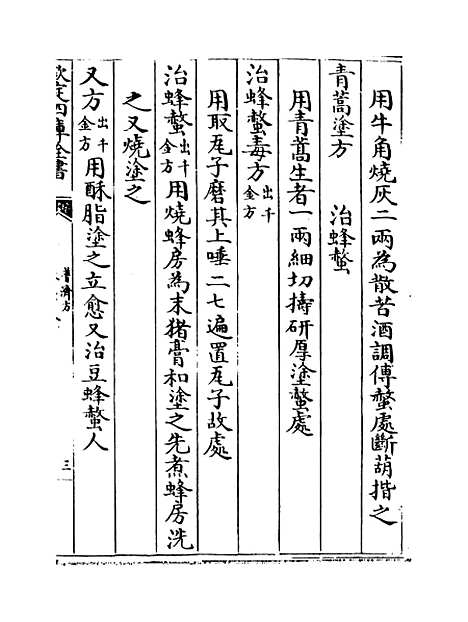 用牛角燒灰二兩為散苦酒調傅螫處斷葫揩之
青蒿塗方　治蜂螫
用青蒿生者一兩細切擣研厚塗螫處
治蜂螫毒方出千金方
用取瓦子磨其上唾二七遍置瓦子故處
治蜂螫出千金方用燒蜂房為末猪膏和塗之先煮蜂房洗
之又燒塗之
又方出千金方用酥脂塗之立愈又治豆蜂螫人
欽定四庫全書
普濟方
三